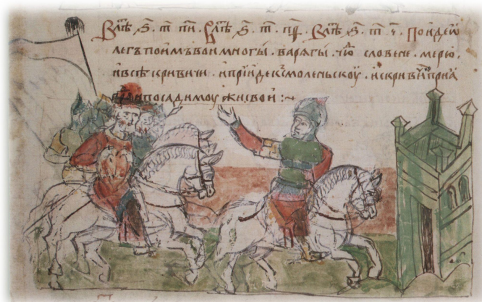 В лѣⷮ ҂ѕ. т҃. п҃и. В лѣⷮ ҂ѕ. т҃. п҃ѳ. В лѣⷮ ҂ѕ. т҃. ч҃. Поиде ѡ
легъ поимъ вои многы. варѧгы. чю словене. мерю.
и всѣ кривичи. и приде к смоленьскоу. и с кри прїѧ
посади моужи свои :~